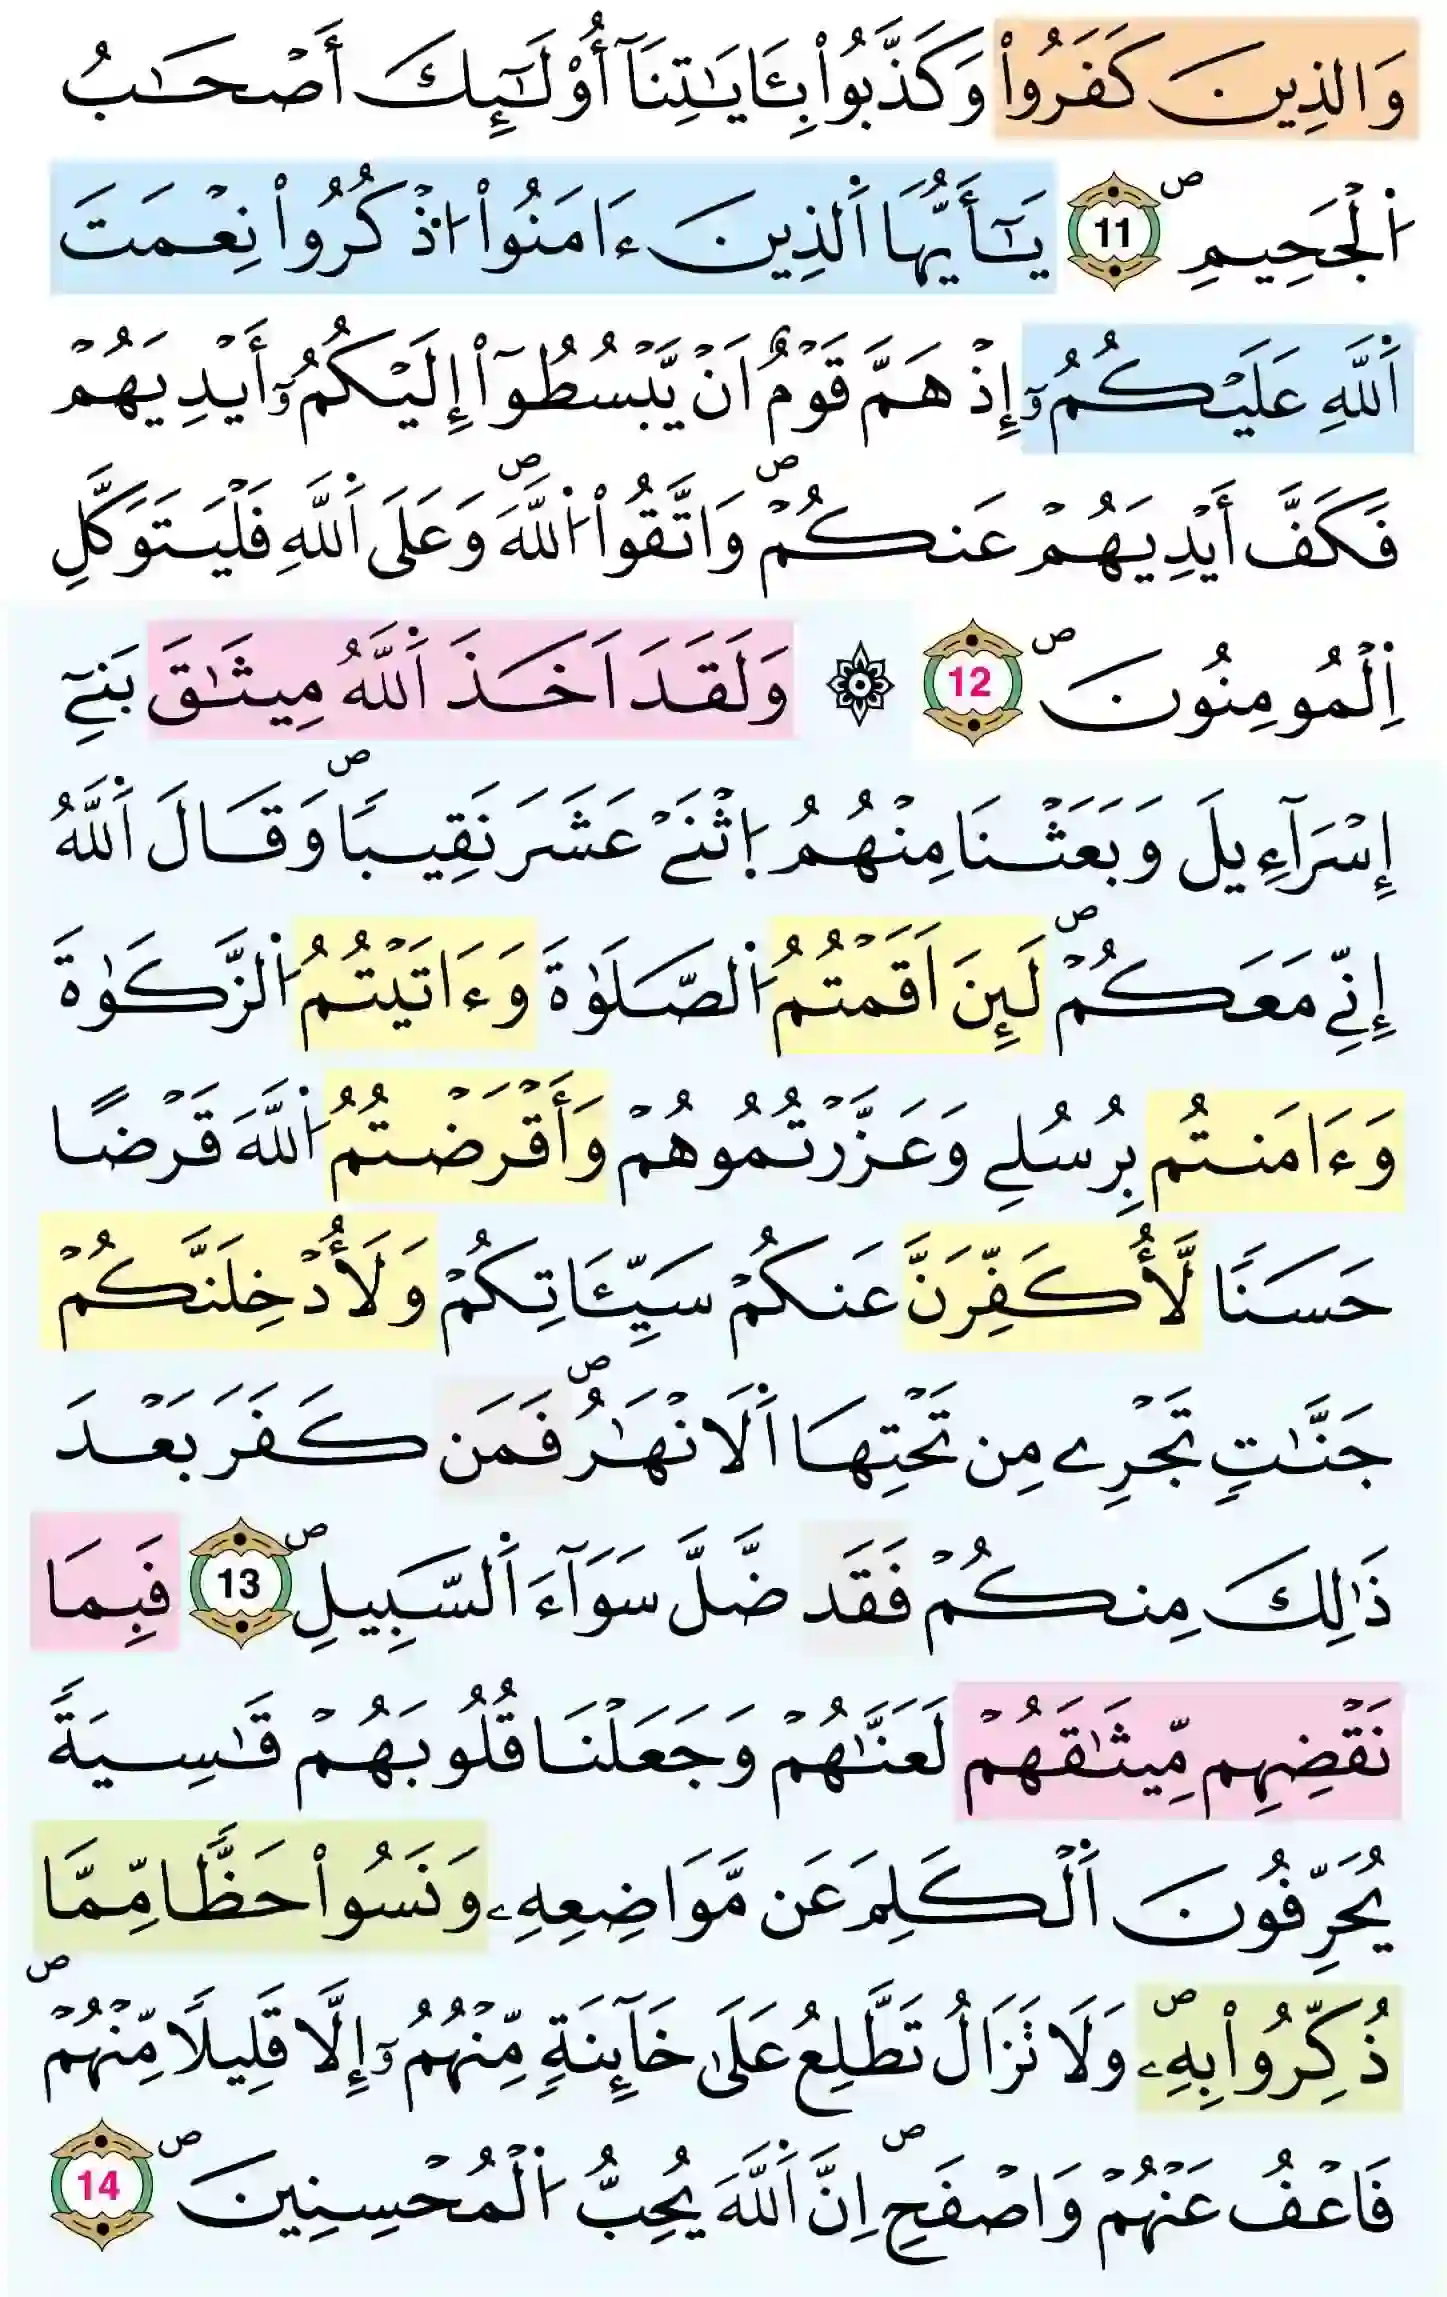 وَالذِينَ كَفَرُواْ وَكَذَّبُواْ بِـَٔايَٰتِنَآ أُوْلَٰٓئِكَ أَصْحَٰبُ
اُ۬لْجَحِيمِۖ 11 يَٰٓأَيُّهَا اَ۬لذِينَ ءَامَنُواْ اُ۟ذْكُرُواْ نِعْمَتَ
اَ۬للَّهِ عَلَيْكُمُۥٓ إِذْ هَمَّ قَوْمٌ اَنْ يَّبْسُطُوٓاْ إِلَيْكُمُۥٓ أَيْدِيَهُمْ
فَكَفَّ أَيْدِيَهُمْ عَنكُمْۖ وَاتَّقُواْ اُ۬للَّهَۖ وَعَلَى اَ۬للَّهِ فَلْيَتَوَكَّلِ
اِ۬لْمُومِنُونَۖ 12 ۞ وَلَقَدَ اَخَذَ اَ۬للَّهُ مِيثَٰقَ بَنِےٓ
إِسْرَآءِيلَ وَبَعَثْنَا مِنْهُمُ اُ۪ثْنَےْ عَشَرَ نَقِيباٗۖ وَقَالَ اَ۬للَّهُ
إِنِّے مَعَكُمْۖ لَئِنَ اَقَمْتُمُ اُ۬لصَّلَوٰةَ وَءَاتَيْتُمُ اُ۬لزَّكَوٰةَ
وَءَامَنتُم بِرُسُلِے وَعَزَّرْتُمُوهُمْ وَأَقْرَضْتُمُ اُ۬للَّهَ قَرْضًا
حَسَنٗا لَّأُكَفِّرَنَّ عَنكُمْ سَيِّـَٔاتِكُمْ وَلَأُدْخِلَنَّكُمْ
جَنَّٰتٖ تَجْرِے مِن تَحْتِهَا اَ۬لَانْهَٰرُۖ فَمَن كَفَرَ بَعْدَ
ذَٰلِكَ مِنكُمْ فَقَد ضَّلَّ سَوَآءَ اَ۬لسَّبِيلِۖ 13 فَبِمَا
نَقْضِهِم مِّيثَٰقَهُمْ لَعَنَّٰهُمْ وَجَعَلْنَا قُلُوبَهُمْ قَٰسِيَةٗ
يُحَرِّفُونَ اَ۬لْكَلِمَ عَن مَّوَاضِعِهِۦ وَنَسُواْ حَظّاٗ مِّمَّا
ذُكِّرُواْ بِهِۦۖ وَلَا تَزَالُ تَطَّلِعُ عَلَىٰ خَآئِنَةٖ مِّنْهُمُۥٓ إِلَّا قَلِيلٗا مِّنْهُمْۖ
فَاعْفُ عَنْهُمْ وَاصْفَحِۖ اِنَّ اَ۬للَّهَ يُحِبُّ اُ۬لْمُحْسِنِينَۖ 14